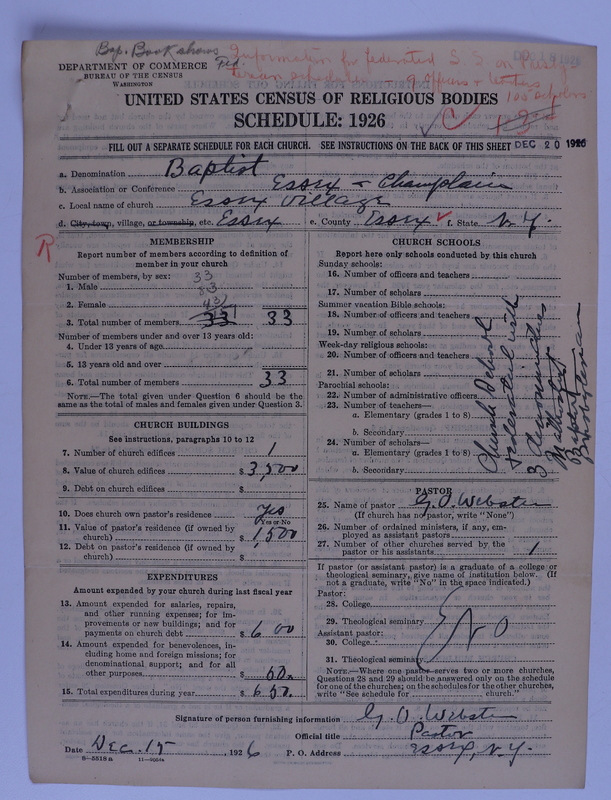 Bap. Book shows
Fed. Information for federated S. S. on Presby-
terian schedule 9 officers & teachers
100 scholars
DEPARTMENT OF COMMERCE
BUREAU OF THE CENSUS
WASHINGTON
UNITED STATES CENSUS OF RELIGIOUS BODIES
SCHEDULE: 1926
FILL OUT A SEPARATE SCHEDULE FOR EACH CHURCH. SEE INSTRUCTIONS ON THE BACK OF THIS SHEET DEC 20 1926
a. Denomination Baptist
b. Association or Conference Essex & Champlain
c. Local name of church Essex Village
d. City, town, village, or township, etc. Essex e. County Essex f. State N.Y.
R
MEMBERSHIP
Report number of members according to definition of
member in your church
Number of members, by sex: 33
1. Male 33
2. Female
3. Total number of members 33 33
Number of members under and over 13 years old:
4. Under 13 years of age
5. 13 years old and over
6. Total number of members 33
NOTE.—The total given under Question 6 should be the
same as the total of males and females given under Question 3.
CHURCH BUILDINGS
See instructions, paragraphs 10 to 12
7. Number of church edifices 1
8. Value of church edifices $ 3,500
9. Debt on church edifices $
10. Does church own pastor's residence Yes
Yes or No
11. Value of pastor's residence (if owned by
church) $ 1,500
12. Debt on pastor's residence (if owned by
church) $
EXPENDITURES
Amount expended by your church during last fiscal year
13. Amount expended for salaries, repairs,
and other running expenses; for im-
provements or new buildings; and for
payments on church debt $ 6 00
14. Amount expended for benevolences, in-
cluding home and foreign missions; for
denominational support; and for all
other purposes $ 50.
15. Total expenditures during year $ 650.
CHURCH SCHOOLS
Report here only schools conducted by this church
Sunday schools:
16. Number of officers and teachers
17. Number of scholars
Summer vacation Bible schools:
18. Number of officers and teachers
19. Number of scholars
Week-day religious schools:
20. Number of officers and teachers
21. Number of scholars
Parochial schools:
22. Number of administrative officers
23. Number of teachers—
a. Elementary (grades 1 to 8)
b. Secondary
24. Number of scholars—
a. Elementary (grades 1 to 8)
b. Secondary
Church School
Federated with
3 denominations
Methodist
Baptist
Presbyterian
PASTOR
25. Name of pastor G. O. Webster
(If church has no pastor, write "None")
26. Number of ordained ministers, if any, em-
ployed as assistant pastors
27. Number of other churches served by the
pastor or his assistants 1
If pastor (or assistant pastor) is a graduate of a college or
theological seminary, give name of institution below. (If
not a graduate, write "No" in the space indicated.)
Pastor:
28. College
29. Theological seminary
Assistant pastor:
30. College
31. Theological seminary
No
NOTE.—Where one pastor serves two or more churches,
Questions 28 and 29 should be answered only on the schedule
for one of the churches; on the schedules for the other churches,
write "See schedule for church."
Signature of person furnishing information G. O. Webster
Official title Pastor
Date Dec. 15 1926 P. O. Address Essex, N.Y.
8—5518a 11—9064a